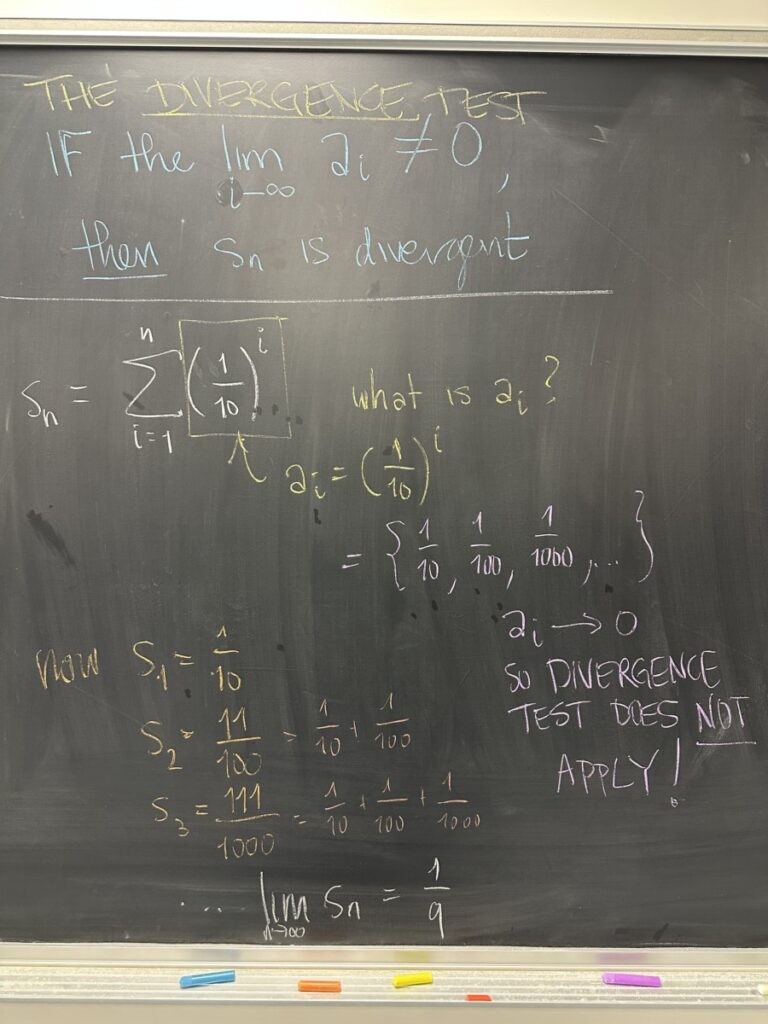 THE DIVERGENCE TEST
IF the lim i→∞ ai ≠ 0,
then sn is divergent
sn = n Σ i=1 (1/10)^i
what is ai?
ai = (1/10)^i
= {1/10, 1/100, 1/1000, ...}
ai → 0
SO DIVERGENCE
TEST DOES NOT
APPLY!
now S1 = 1/10
S2 = 11/100 = 1/10 + 1/100
S3 = 111/1000 = 1/10 + 1/100 + 1/1000
... lim n→∞ Sn = 1/9